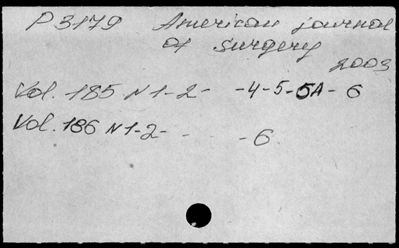 P 3179 American journal
of surgery
2003
Vol. 185 N 1-2- -4-5-5A-6
Vol. 186 N 1-2- - -6